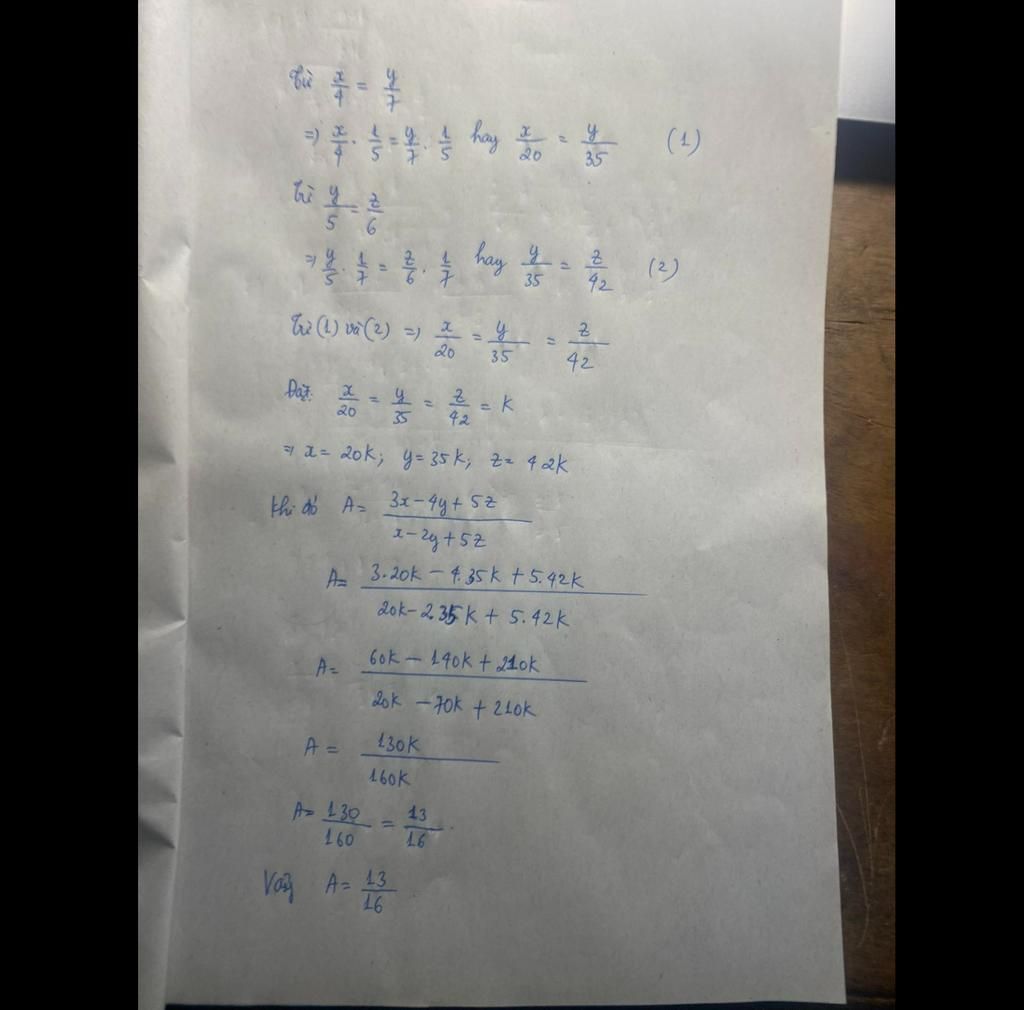 Từ x/4 = y/7
=> x/4 . 1/5 = y/7 . 1/5 hay x/20 = y/35 (1)
Từ y/5 = z/6
=> y/5 . 1/7 = z/6 . 1/7 hay y/35 = z/42 (2)
Từ (1) và (2) => x/20 = y/35 = z/42
Đặt x/20 = y/35 = z/42 = K
=> x = 20K; y = 35K; z = 42K
Khi đó A = (3x - 4y + 5z)/(x - 2y + 5z)
A = (3.20K - 4.35K + 5.42K)/(20K - 2.35K + 5.42K)
A = (60K - 140K + 210K)/(20K - 70K + 210K)
A = 130K/160K
A = 130/160 = 13/16.
Vậy A = 13/16